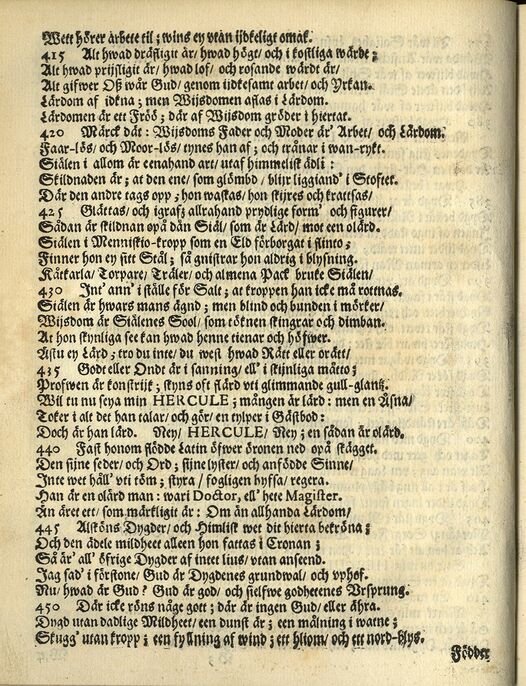 Wett hörer arbete til; wins ey utan ijdkeligt omak.
415 Alt hwad dräfligit är/ hwad högt/ och i kostliga wärdt;
Alt hwad prijsligit är/ hwad lof/ och rosande wärdt är/
Alt gifwer Oß wår Gud/ genom idkesamt arbet/ och Yrkan.
Lärdom af idkna; men Wijsdomen aflas i Lärdom.
Lärdomen är ett Fröö; där af Wijsdom gröder i hiertat.
420 Märck dät: Wijsdoms Fader och Moder är Arbet/ och Lärdom.
Faar-lös/ och Moor-lös/ tynes han af; och trånar i wan-rykt.
Siälen i allom är eenahand art/ utaf himmelisk ädli:
Skildnaden är; at den ene/ som glömbd/ blijr liggiand' i Stoftet.
Där den andre tags opp; hon waskas/ hon skijres och krattsas/
425 Glättas/ och igrafs allrahand prydlige form' och figurer/
Sådan är skildnan opå dän Siäl/ som är Lärd/ mot een olärd.
Siälen i Menniskio-kropp som en Eld förborgat i flinto;
Finner hon ey sitt Stål; så gnistrar hon aldrig i blysning.
Kåtkarla/ Torpare/ Träler/ och almena Pack bruke Siälen/
430 Int' ann' i ställe för Salt; at kroppen han icke må rottnas.
Siälen är hwars mans ägnd; men blind och bunden i mörker/
Wijsdom är Siälenes Sool/ som töknen skingrar och dimban.
At hon skynliga see kan hwad henne tienar och höfwer.
Ästu ey Lärd; tro du inte/ du west hwad Rätt eller orätt/
435 Godt eller Ondt är i sanning/ ell' i skijnliga måtto;
Profwen är konstrijk; skyns oft flärd vti glimmande gull-glantz.
Wil tu nu seya min HERCULE; mången är lärd: men en Åsna/
Toker i alt det han talar/ och gör/ en tylper i Gästbod:
Doch är han lärd. Ney/ HERCULE/ Ney; en sådan är olärd.
440 Fast honom flödde Latin öfwer öronen ned opå skägget.
Den sijne seder/ och Ord; sijne lyster/ och anfödde Sinne/
Inte wet håll' vti töm; styra/ fogligen hyfsa/ regera.
Han är en olärd man: wari Doctor, ell' hete Magister.
Än äret ett/ som märkligit är: Om än allhanda Lärdom/
445 Alstöns Dygder/ och Himlisk wet dit hierta bekröna;
Och den ädele mildheet alleen hon fattas i Cronan;
Så är' all' öfrige Dygder af intet lius/ vtan anseend.
Jag sad' i förstone/ Gud är Dygdenes grundwal/ och vphof.
Nu/ hwad är Gud? Gud är god/ och sielfwe godhetenes Vrsprung.
450 Där icke röns någe gott; där är ingen Gud/ eller ähra.
Dygd utan dadlige Mildheet/ een dunst är; een målning i watne;
Skugg' utan kropp; een fyllning af wind; ett hliom/ och ett nord-blys.
Födder